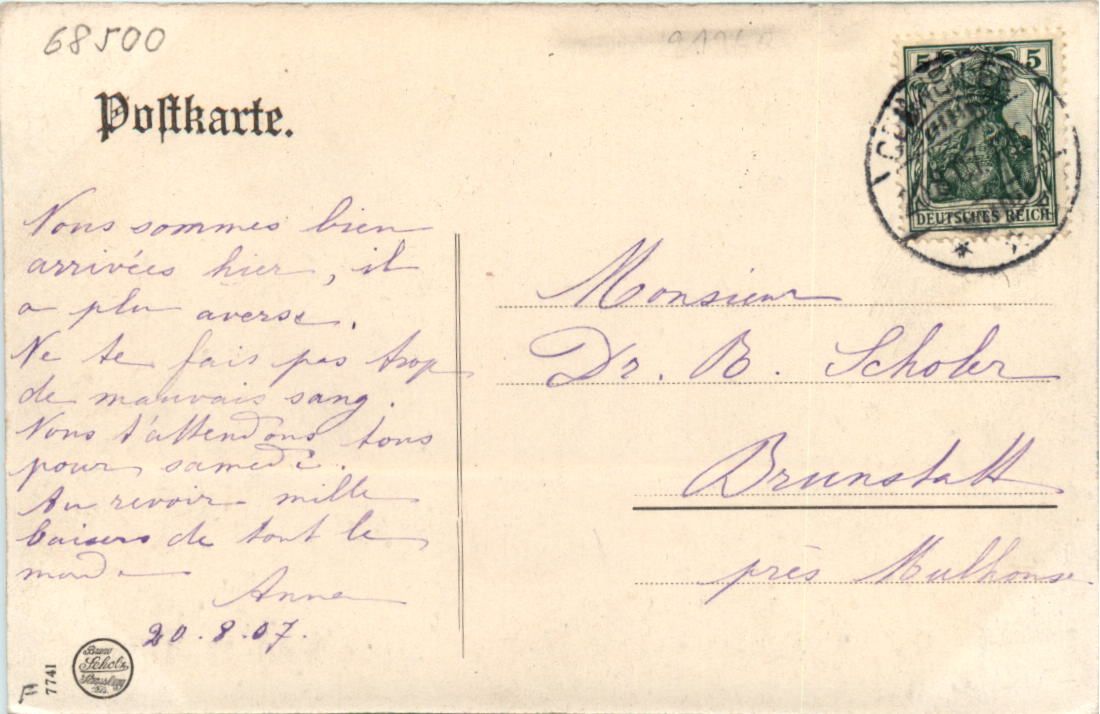 68500
Postkarte.
5 5
DEUTSCHES REICH
Nous sommes bien
arrivées hier, il
a plu averse.
Ne te fais pas trop
de mauvais sang.
Nous t'attendons tous
pour samedi.
Au revoir mille
baisers de tout le
monde
Anna
20.8.07.
Monsieur
Dr. B. Scholer
Brunstatt
près Mulhouse
Bruno
Scholz
Strassburg
7741